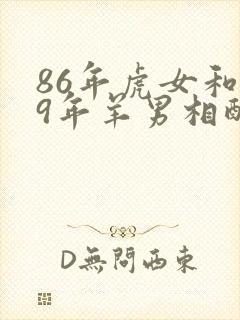 86年虎女和
9年羊男相配
D無問西東